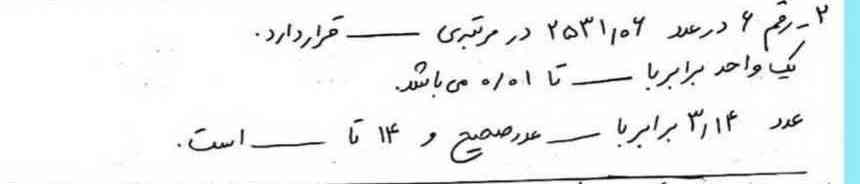 ۲- رقم ۶ در عدد ۲۵۳۱/۰۶ در مرتبه‌ی ــــــ قرار دارد.
یک واحد برابر با ــــــ تا ۰/۰۱ می باشد.
عدد ۳/۱۴ برابر با ــــــ عدد صحیح و ۱۴ تا ــــــ است.